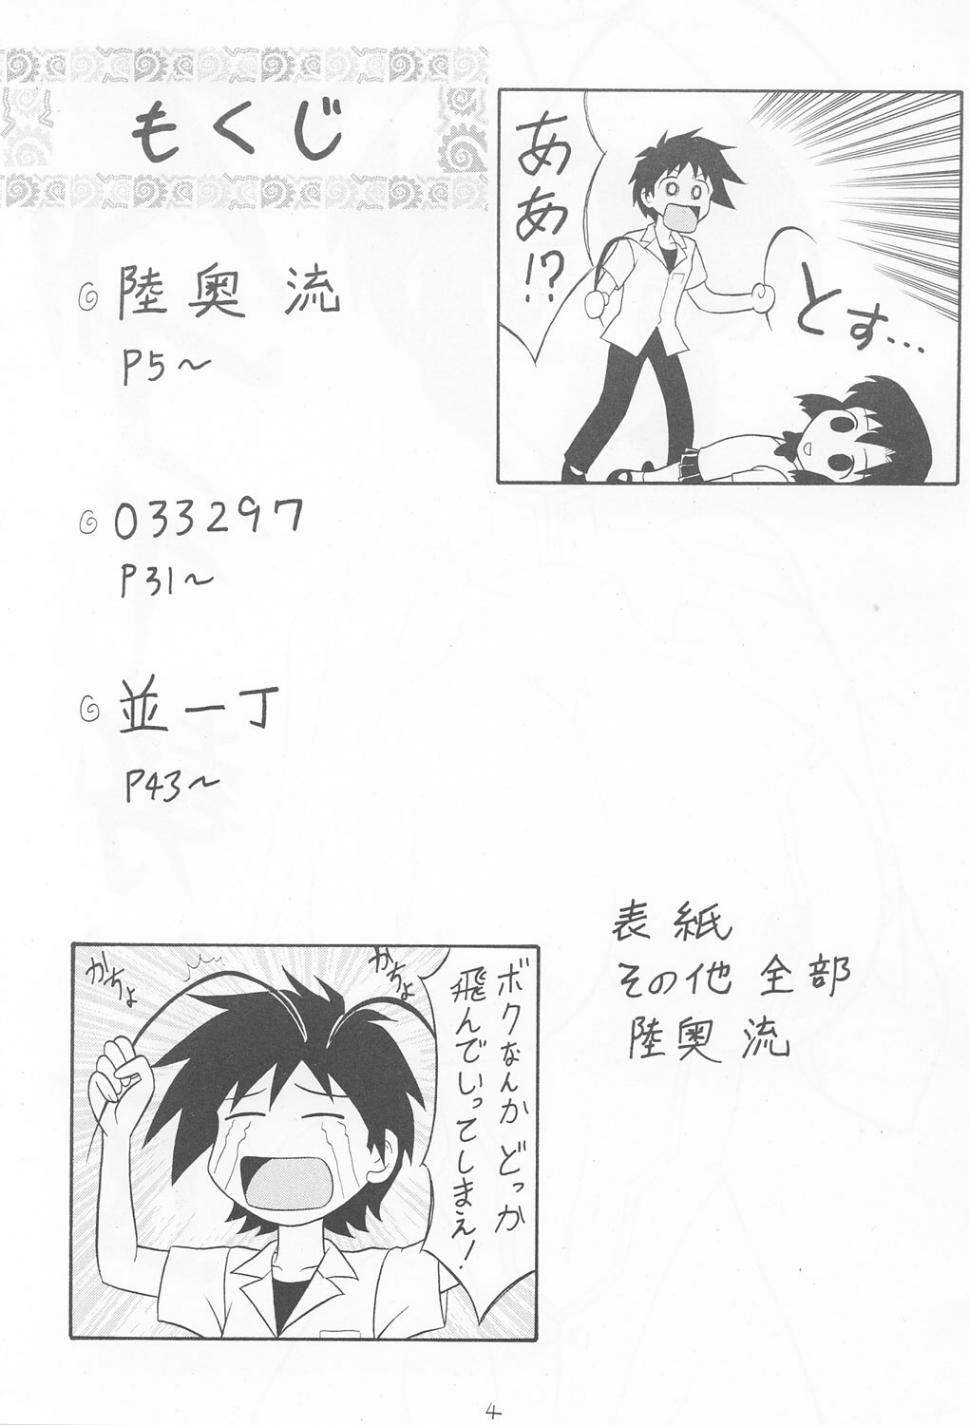 もくじ
陸奥 流
P5～
033297
P31～
並一丁
P43～
ああ!?
とす…
表紙
その他 全部
陸奥 流
ボクなんか どっか
飛んでいってしまえ!
かちょ
かちょ
4